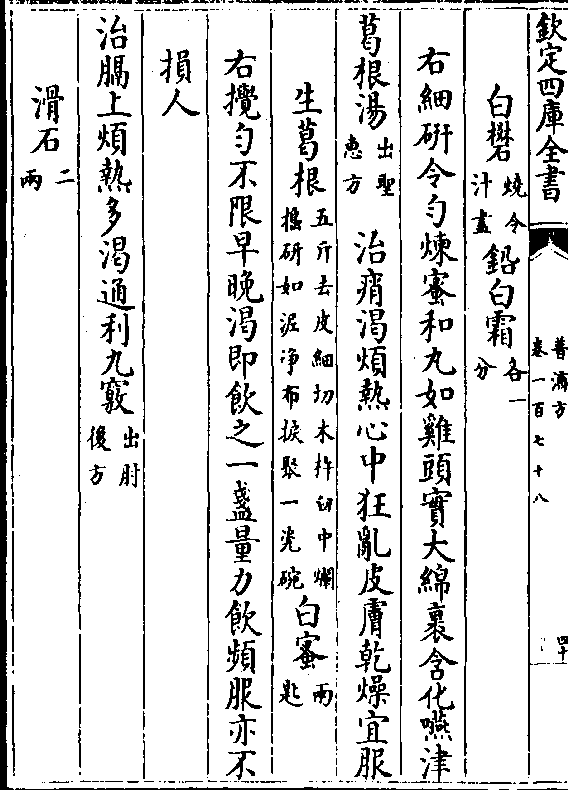 欽定四庫全書
普濟方
卷一百七十八
四十
白礬燒令汁盡 鉛白霜各一分
右細研令勻煉蜜和丸如雞頭實大綿裹含化嚥津
葛根湯出聖惠方 治痟渴煩熱心中狂亂皮膚乾燥宜服
生葛根五斤去皮細切木杵臼中爛搗研如泥净布捩聚一瓷碗 白蜜兩匙
右攪勻不限早晚渴即飲之一盞量力飲頻服亦不
損人
治膈上煩熱多渴通利九竅出肘後方
滑石二兩